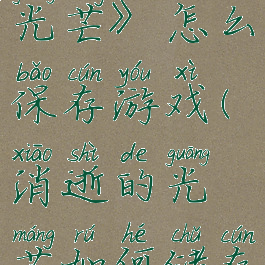 光芒》怎么
bǎo cún yóu xì
保存游戏(
xiāo shì de guāng
消逝的光
máng rú hé chǔ cún
芒如何储存